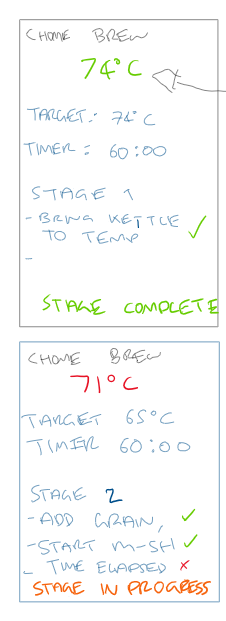 CHOME BREW
74°C
TARGET: 74°C
TIMER: 60:00
STAGE 1
- BRING KETTLE
TO TEMP ✓
-
STAGE COMPLETE
CHOME BREW
71°C
TARGET 65°C
TIMER 60:00
STAGE 2
- ADD GRAIN, ✓
- START MASH ✓
- TIME ELAPSED ×
STAGE IN PROGRESS